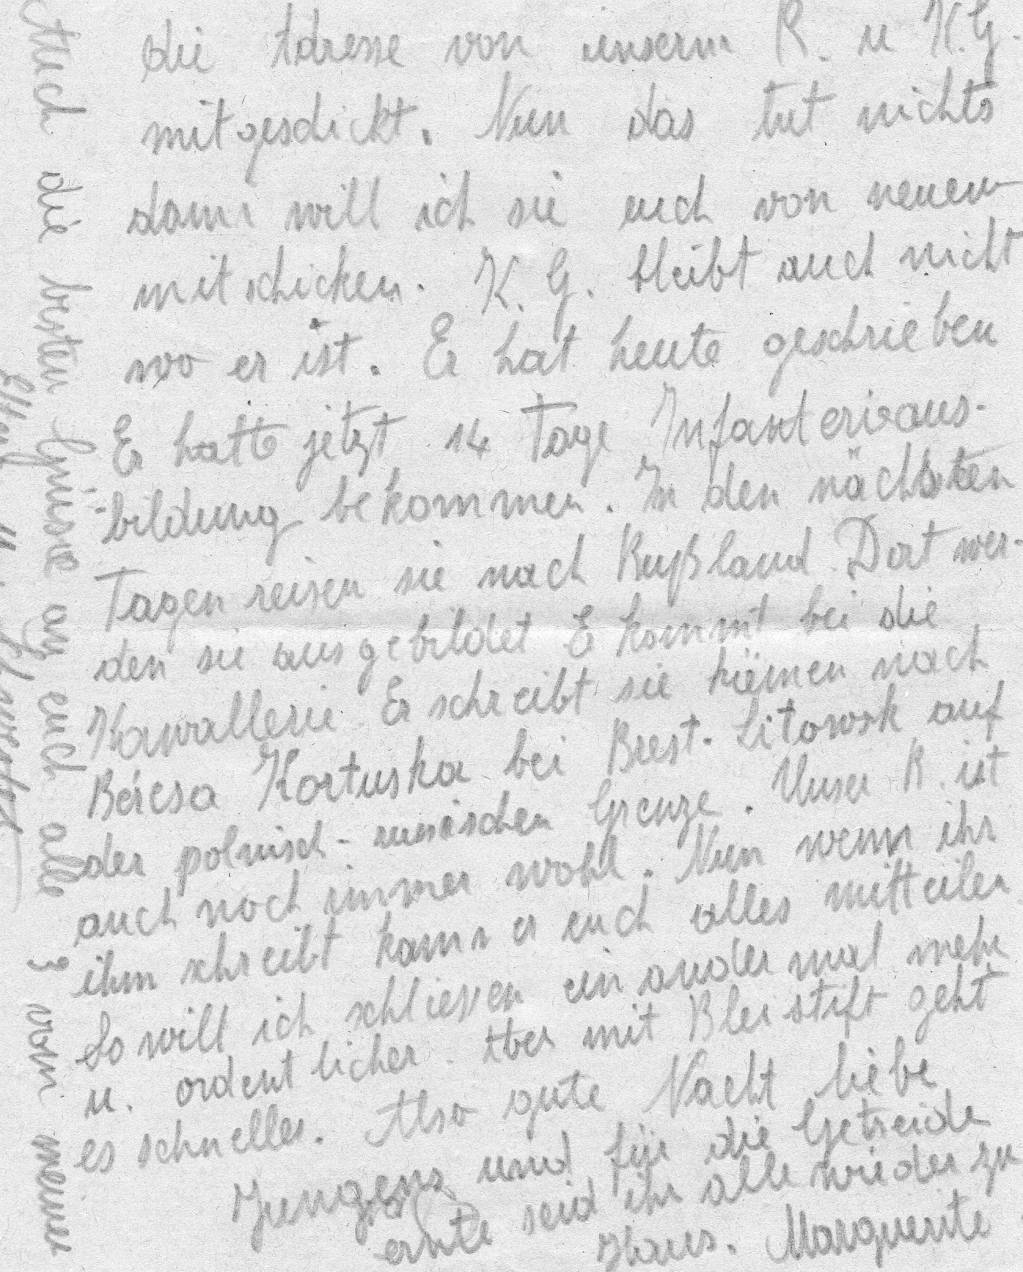 die Adresse von unserm R. u K.G.
mitgeschickt. Nun das tut nichts
dann will ich sie euch von neuem
mitschicken. K. G. bleibt auch nicht
wo er ist. Er hat heute geschrieben
Er hatte jetzt 14 Tage Infanterieaus-
-bildung bekommen. In den nächsten
Tagen reisen sie nach Rußland. Dort wer-
den sie ausgebildet Er kommt bei die
Kavallerie. Er schreibt sie kämen nach
Beresa Kartuska bei Brest-Litowsk auf
der polnisch-russischen Grenze. Unser R. ist
auch noch immer wohl. Nun wenn ihr
ihm schreibt kann er euch alles mitteilen
So will ich schliessen ein ander mal mehr
u. ordentlicher. Aber mit Bleistift geht
es schneller. Also gute Nacht liebe
Jungens und für die Getreide
ernte seid ihr alle wieder zu
Haus. Marguerite
Auch die besten Grüsse an euch alle 3 von meinen
Eltern u.